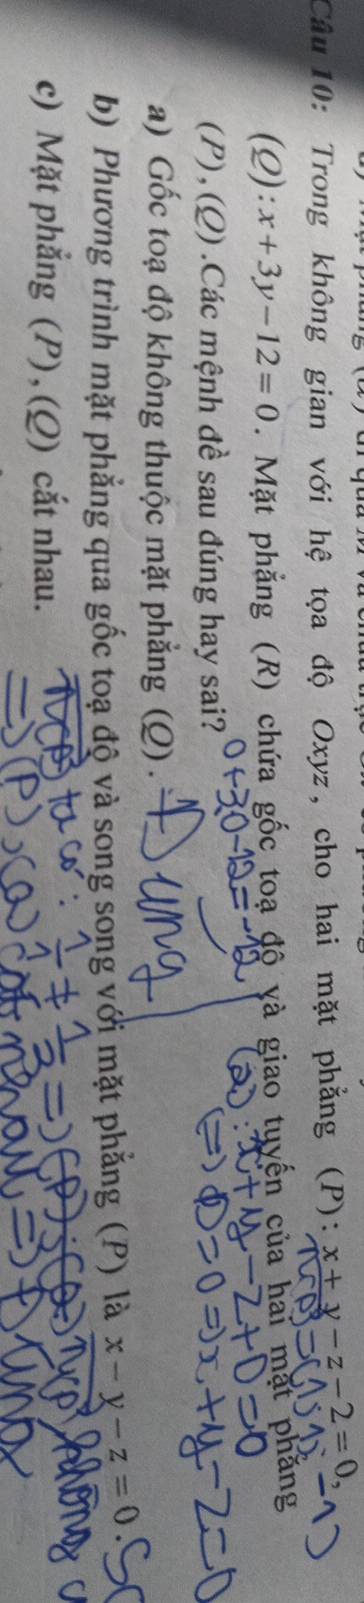 Câu 10: Trong không gian với hệ tọa độ Oxyz, cho hai mặt phẳng (P): x + y - z - 2 = 0,
(Q): x + 3y - 12 = 0. Mặt phẳng (R) chứa gốc toạ độ và giao tuyến của hai mặt phẳng
(P), (Q). Các mệnh đề sau đúng hay sai?
0 + 3.0 - 12 = -12
a) Gốc toạ độ không thuộc mặt phẳng (Q). Đúng
x + y - z + D = 0
=) D = 0 =) x + y - z = 0
b) Phương trình mặt phẳng qua gốc toạ độ và song song với mặt phẳng (P) là x - y - z = 0.
c) Mặt phẳng (P), (Q) cắt nhau.
ta có: 1/1 ≠ 1/3 =)
=) (P), (Q) cắt nhau =) Đúng